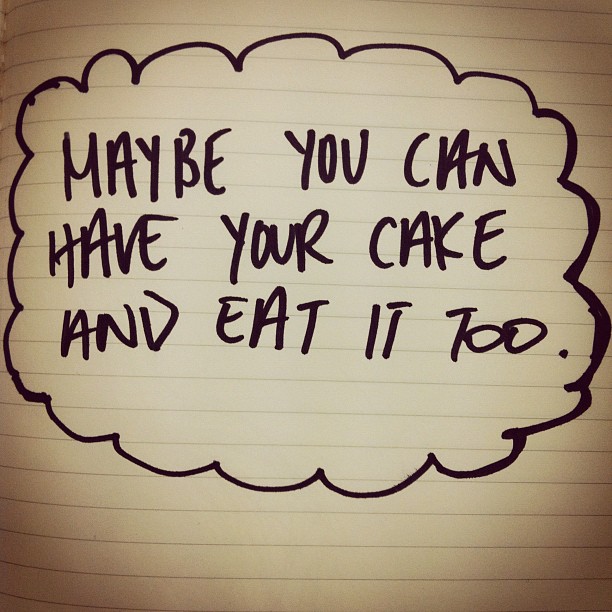 MAYBE YOU CAN
HAVE YOUR CAKE
AND EAT IT TOO.